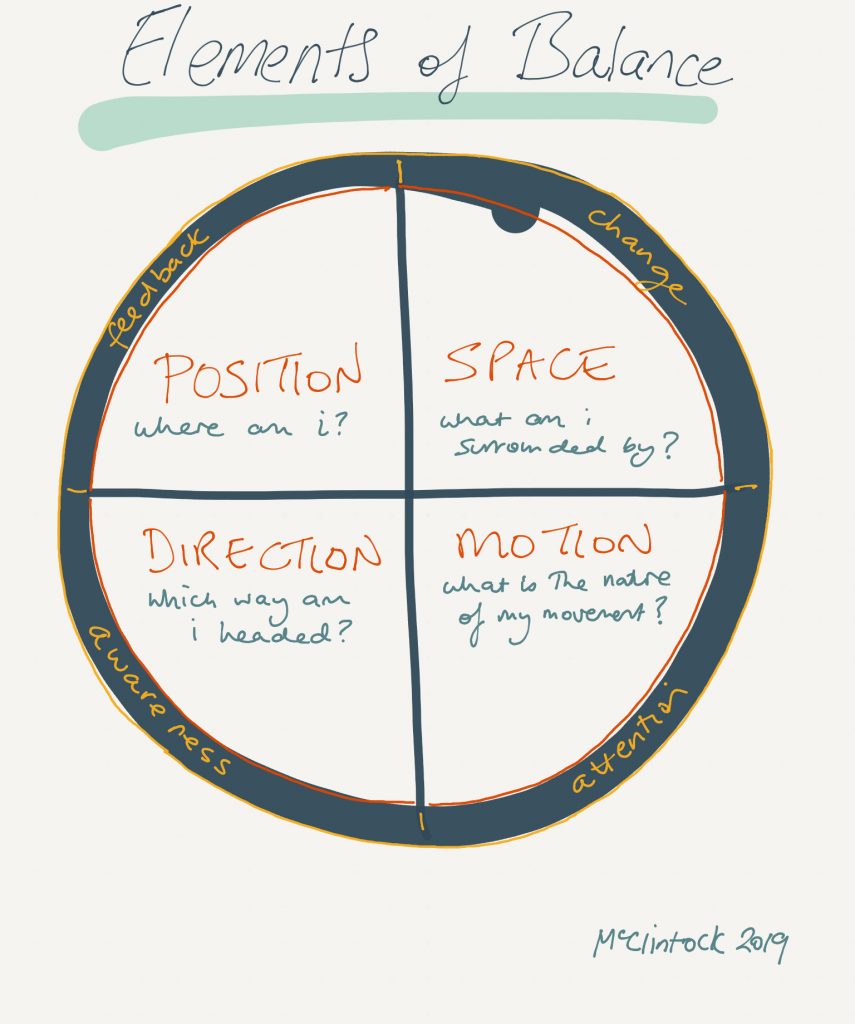 Elements of Balance
feedback
change
POSITION
where am i?
SPACE
what am i
surrounded by?
DIRECTION
which way am
i headed?
MOTION
what is The nature
of my movement?
awareness
attention
McClintock 2019